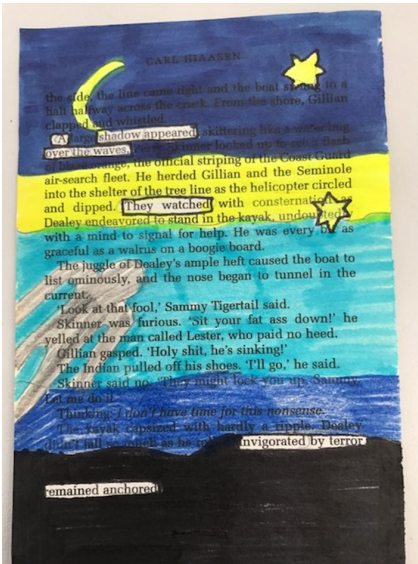 CARL HIAASEN
the side, the line came tight and the boat in a
halt halfway across the creek. From the shore, Gillian
clapped and whistled.
A large shadow appeared, skittering like a water bug
over the waves. Skinner looked up to a flash
of orange, the official striping of the Coast Guard
air-search fleet. He herded Gillian and the Seminole
into the shelter of the tree line as the helicopter circled
and dipped. They watched with consternation
Dealey endeavored to stand in the kayak, undoubtedly
with a mind to signal for help. He was every bit as
graceful as a walrus on a boogie board.
The juggle of Dealey's ample heft caused the boat to
list ominously, and the nose began to tunnel in the
current.
'Look at that fool,' Sammy Tigertail said.
Skinner was furious. 'Sit your fat ass down!' he
yelled at the man called Lester, who paid no heed.
Gillian gasped. 'Holy shit, he's sinking!'
The Indian pulled off his shoes. 'I'll go,' he said.
Skinner said no. 'They might lock you up, Sammy.
Let me do it.'
Thinking: I don't have time for this nonsense.
The kayak capsized with hardly a ripple. Dealey
didn't fall so much as he invigorated by terror
remained anchored